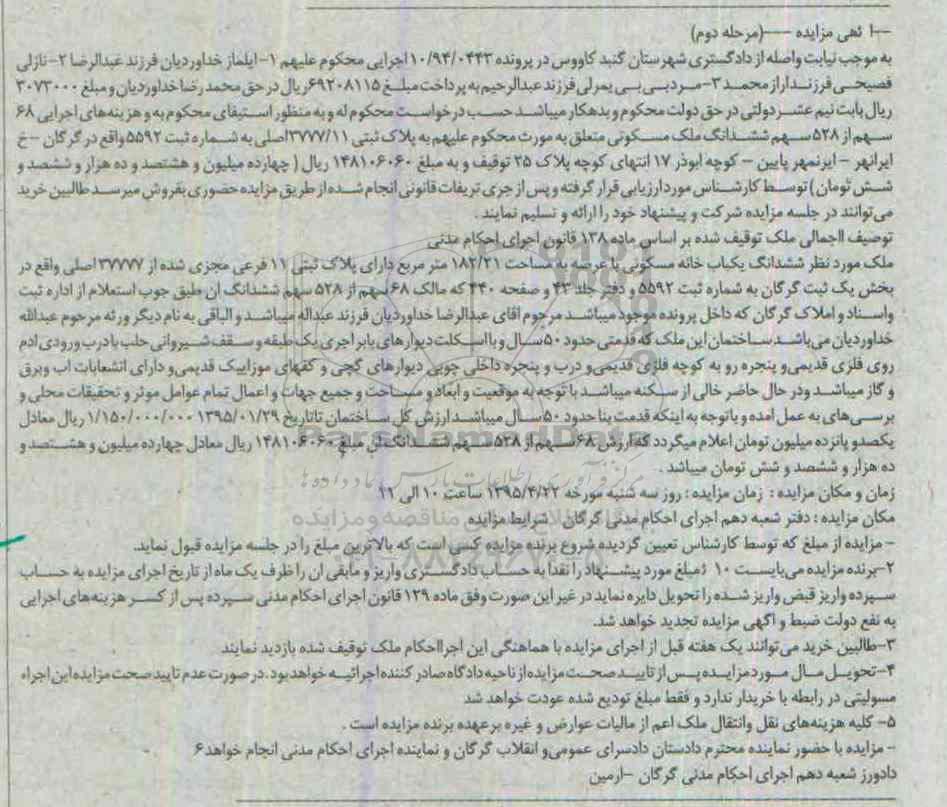 -ا ئهی مزایده ---(مرحله دوم)
به موجب نیابت واصله از دادگستری شهرستان گنبد کاووس در پرونده ۱۰/۹۴/۰۴۴۳ اجرایی محکوم علیهم ۱- ایلماز خداوردیان فرزند عبدالرضا ۲- نازلی
فصیحی فرزند اراز محمد ۳- مرد بی بی یمرلی فرزند عبدالرحیم به پرداخت مبلغ ۶۹۲۰۸۱۱۵ ریال در حق محمد رضا خداوردیان و مبلغ ۳۰۷۳۰۰۰
ریال بابت نیم عشر دولتی در حق دولت محکوم و بدهکار میباشد حسب درخواست محکوم له و به منظور استیفای محکوم به و هزینه های اجرایی ۶۸
سهم از ۵۲۸ سهم ششدانگ ملک مسکونی متعلق به مورث محکوم علیهم به پلاک ثبتی ۳۷۷۷/۱۱ اصلی به شماره ثبت ۵۵۹۲ واقع در گرگان - خ
ایرانهر - ایرنمهر پایین - کوچه ابوذر ۱۷ انتهای کوچه پلاک ۲۵ توقیف و به مبلغ ۱۴۸۱۰۶۰۶۰ ریال ( چهارده میلیون و هشتصد و ده هزار و ششصد و
شش تومان ) توسط کارشناس مورد ارزیابی قرار گرفته و پس از جری تریفات قانونی انجام شده از طریق مزایده حضوری بفروش میرسد طالبین خرید
می توانند در جلسه مزایده شرکت و پیشنهاد خود را ارائه و تسلیم نمایند .
توصیف ااجمالی ملک توقیف شده بر اساس ماده ۱۳۸ قانون اجرای احکام مدنی
ملک مورد نظر ششدانگ یکباب خانه مسکونی با عرصه به مساحت ۱۸۲/۲۱ متر مربع دارای پلاک ثبتی ۱۱ فرعی مجزی شده از ۳۷۷۷۷ اصلی واقع در
بخش یک ثبت گرگان به شماره ثبت ۵۵۹۲ و دفتر جلد ۴۳ و صفحه ۴۴۰ که مالک ۶۸ سهم از ۵۲۸ سهم ششدانگ ان طبق جوب استعلام از اداره ثبت
واسناد و املاک گرگان که داخل پرونده موجود میباشد مرحوم اقای عبدالرضا خداوردیان فرزند عبداله میباشد و الباقی به نام دیگر ورثه مرحوم عبدالله
خداوردیان می باشد ساختمان این ملک که قدمتی حدود ۵۰ سال و با اسکلت دیوارهای بابر اجری یک طبقه و سقف شیروانی حلب با درب ورودی ادم
روی فلزی قدیمی و پنجره رو به کوچه فلزی قدیمی و درب و پنجره داخلی چوبی دیوارهای گچی و کفهای موزاییک قدیمی و دارای انشعابات اب وبرق
و گاز میباشد ودر حال حاضر خالی از سکنه میباشد با توجه به موقعیت و ابعاد و مساحت و جمیع جهات و اعمال تمام عوامل موثر و تحقیقات محلی و
برسی های به عمل امده و باتوجه به اینکه قدمت بنا حدود ۵۰ سال میباشد ارزش کل ساختمان تاتاریخ ۱۳۹۵/۰۱/۲۹ ۱/۱۵۰/۰۰۰/۰۰۰ ریال معادل
یکصدو پانزده میلیون تومان اعلام میگردد که ارزش ۶۸ سهم از ۵۲۸ سهم ششدانگ ان مبلغ ۱۴۸۱۰۶۰۶۰ ریال معادل چهارده میلیون و هشتصد و
ده هزار و ششصد و شش تومان میباشد .
زمان و مکان مزایده : زمان مزایده : روز سه شنبه مورخه ۱۳۹۵/۴/۲۲ ساعت ۱۰ الی ۱۱
مکان مزایده : دفتر شعبه دهم اجرای احکام مدنی گرگان شرایط مزایده
- مزایده از مبلغ که توسط کارشناس تعیین گردیده شروع برنده مزایده کسی است که بالاترین مبلغ را در جلسه مزایده قبول نماید.
۲- برنده مزایده می بایست ۱۰ ٪ مبلغ مورد پیشنهاد را نقدا به حساب دادگستری واریز و مابقی ان را ظرف یک ماه از تاریخ اجرای مزایده به حساب
سپرده واریز قبض واریز شده را تحویل دایره نماید در غیر این صورت وفق ماده ۱۲۹ قانون اجرای احکام مدنی سپرده پس از کسر هزینه های اجرایی
به نفع دولت ضبط و اگهی مزایده تجدید خواهد شد.
۳- طالبین خرید می توانند یک هفته قبل از اجرای مزایده با هماهنگی این اجرااحکام ملک توقیف شده بازدید نمایند
۴- تحویل مال مورد مزایده پس از تایید صحت مزایده از ناحیه دادگاه صادر کننده اجرائیه خواهد بود . در صورت عدم تایید صحت مزایده این اجراء
مسولیتی در رابطه با خریدار ندارد و فقط مبلغ تودیع شده عودت خواهد شد
۵- کلیه هزینه های نقل وانتقال ملک اعم از مالیات عوارض و غیره برعهده برنده مزایده است .
- مزایده با حضور نماینده محترم دادستان دادسرای عمومی و انقلاب گرگان و نماینده اجرای احکام مدنی انجام خواهد۶
دادورز شعبه دهم اجرای احکام مدنی گرگان - ارمین